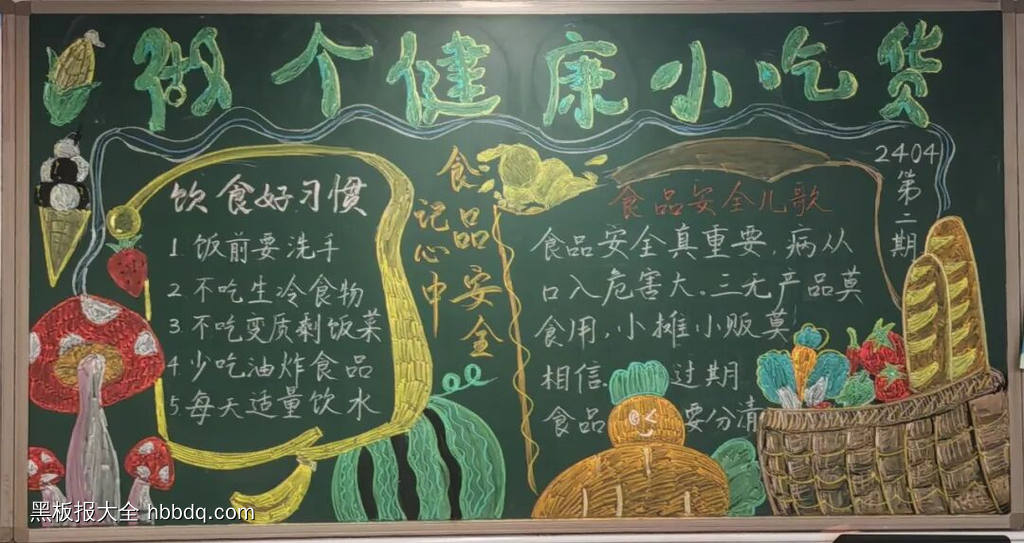 做个健康小吃货
饮食好习惯
1.饭前要洗手
2.不吃生冷食物
3.不吃变质剩饭菜
4.少吃油炸食品
5.每天适量饮水
食品安全
记心中
食品安全儿歌
食品安全真重要，病从
口入危害大。三无产品莫
食用，小摊小贩莫
相信。过期
食品要分清
2404
第二期
黑板报大全 hbbdq.com